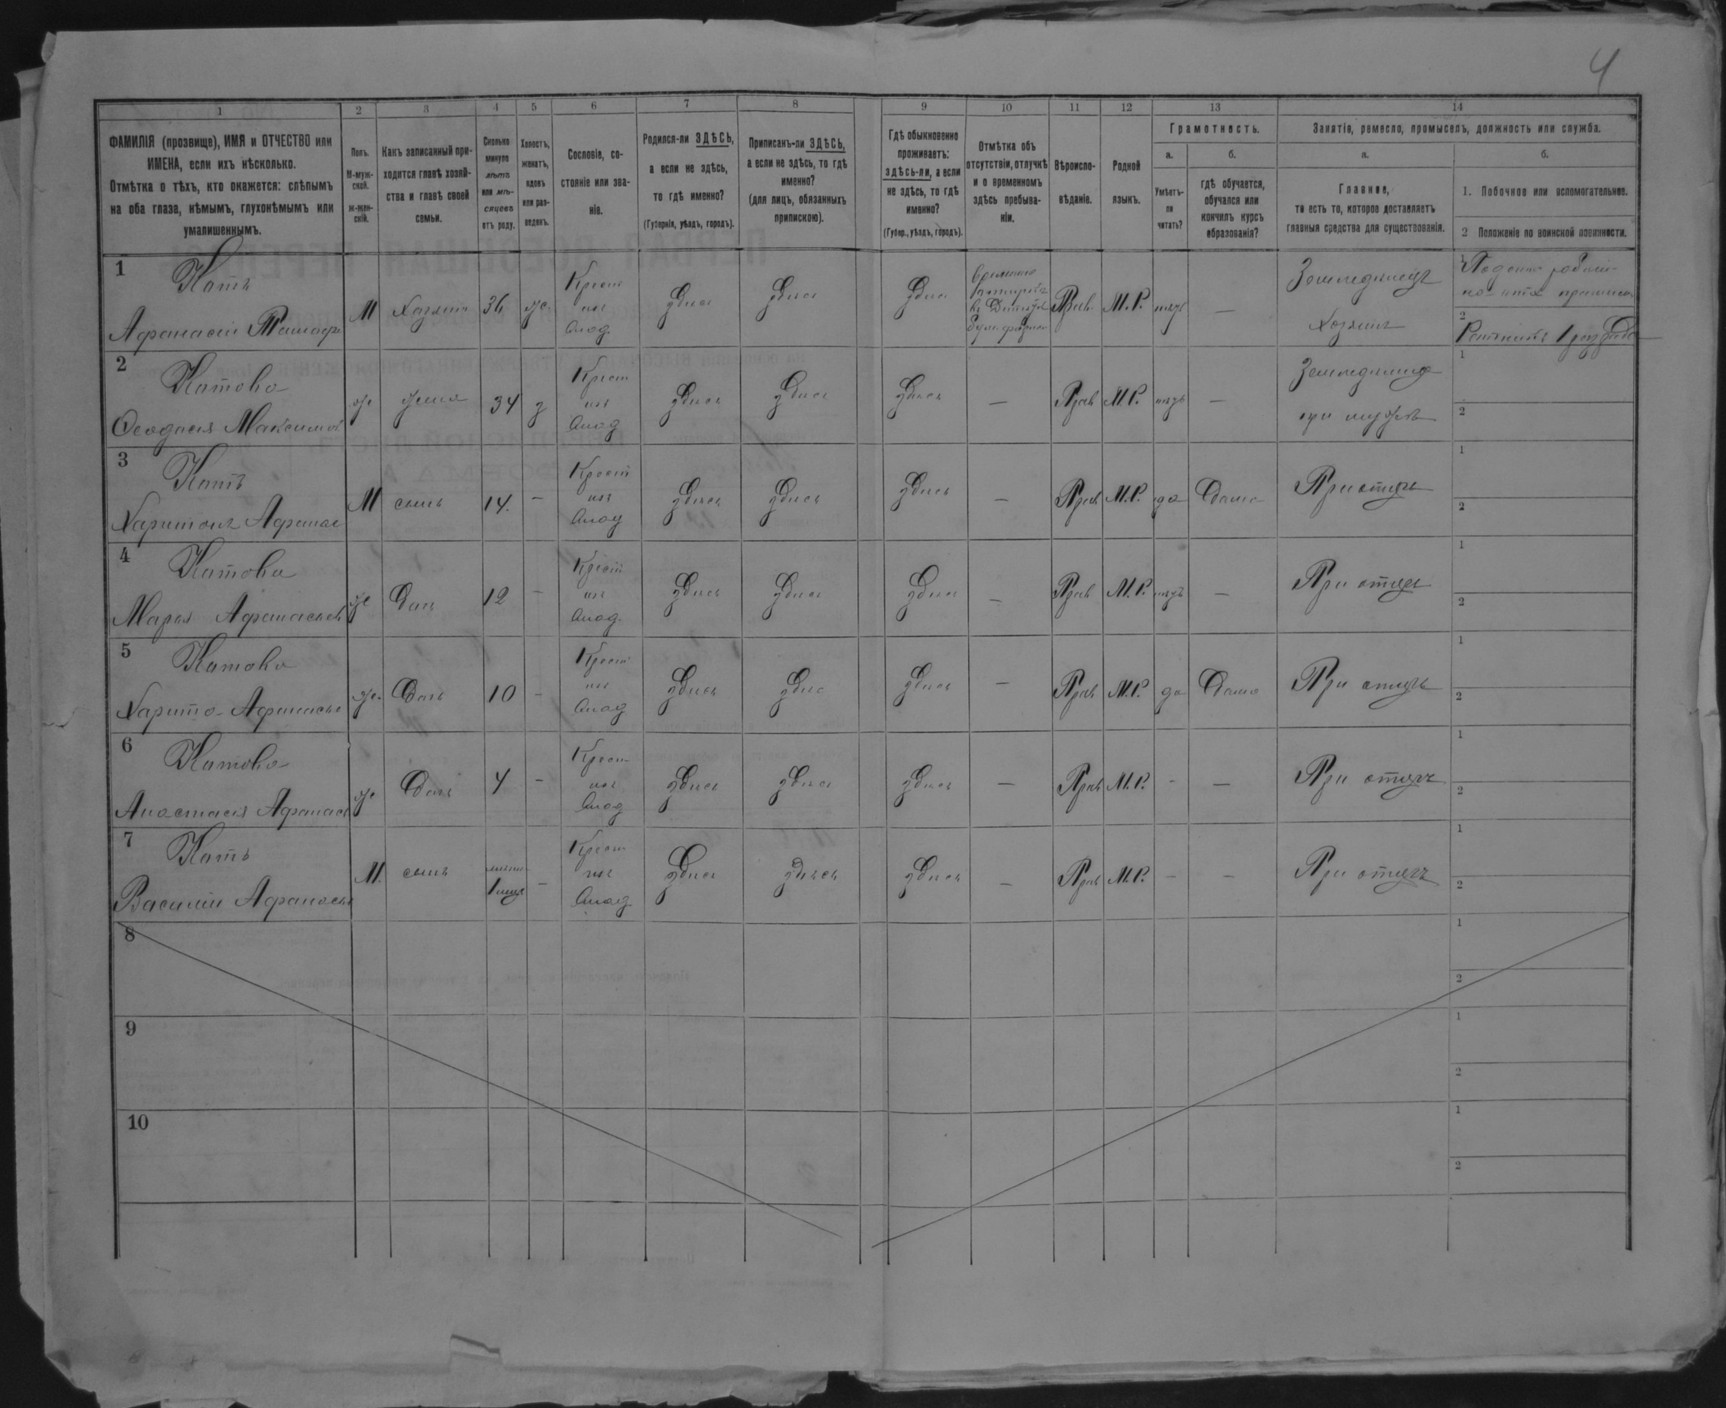 4
1 2 3 4 5 6 7 8 9 10 11 12 13 14
ФАМИЛІЯ (прозвище), ИМЯ и ОТЧЕСТВО или
ИМЕНА, если ихъ нѣсколько.
Отмѣтка о тѣхъ, кто окажется: слѣпымъ
на оба глаза, нѣмымъ, глухонѣмымъ или
умалишеннымъ.
Полъ.
М-муж-
ской.
ж-жен-
скій.
Какъ записанный при-
ходится главѣ хозяй-
ства и главѣ своей
семьи.
Сколько
минуло
лѣтъ
или мѣ-
сяцевъ
отъ роду.
Холостъ,
женатъ,
вдовъ
или раз-
веденъ.
Сословіе, со-
стояніе или зва-
ніе.
Родился-ли ЗДѢСЬ,
а если не здѣсь,
то гдѣ именно?
(Губернія, уѣздъ, городъ).
Приписанъ-ли ЗДѢСЬ,
а если не здѣсь, то гдѣ
именно?
(для лицъ, обязанныхъ
припискою).
Гдѣ обыкновенно
проживаетъ:
здѣсь-ли, а если
не здѣсь, то гдѣ
именно?
(Губер., уѣздъ, городъ).
Отмѣтка объ
отсутствіи, отлучкѣ
и о временномъ
здѣсь пребыва-
ніи.
Вѣроиспо-
вѣданіе.
Родной
языкъ.
Грамотность.
а.
Умѣетъ-
ли
читать?
б.
гдѣ обучается,
обучался или
кончилъ курсъ
образованія?
Занятіе, ремесло, промыселъ, должность или служба.
а.
Главное,
то есть то, которое доставляетъ
главныя средства для существованія.
б.
1. Побочное или вспомогательное.
2 Положеніе по воинской повинности.
1
Катъ
Афанасій
М Хозяинъ 36 ж. Крест из влад здесь здесь здесь Прав. М.Р. нетъ —
Земледелецъ
Хозяинъ
2
Катова
Феодосія Максимов
ж жена 34 з Крест из влад здесь здесь здесь — Прав М.Р. нетъ —
Земледелица
при мужѣ
1
2
3
Катъ
Харитонъ Афанас
М сынъ 14. — Крест из влад здесь здесь здесь — Прав М.Р. да Дома При отце
1
2
4
Катова
Марья Афанасьев
ж Доч 12 — Крест из влад здесь здесь здесь — Прав М.Р. нетъ — При отце
1
2
5
Катова
Афанасьев
ж. Доч 10 — Крест из влад здесь здесь здесь — Прав М.Р. да Дома При отцѣ
1
2
6
Катова
Анастасія Афанасьев
ж Доч 4 — Крест из влад здесь здесь здесь — Прав М.Р. — — При отце
1
2
7
Катъ
Василий Афанасьев
М. сынъ — Крест из влад здесь здесь здесь — Прав М.Р. — — При отце
1
2
8
1
2
9
1
2
10
1
2